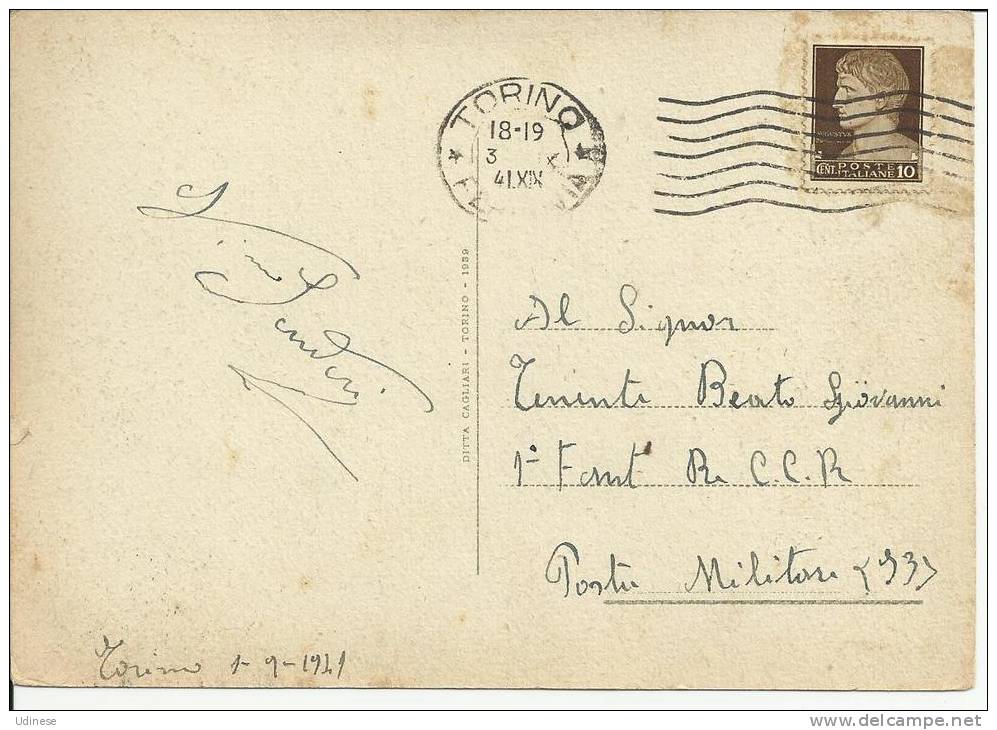 TORINO
18-19
3 IX
41.XIX
AUGUSTVS
POSTE
CENT. ITALIANE 10
DITTA CAGLIARI - TORINO - 1939
Al Signor
Tenente Beato Giovanni
1º Fant Re C.C.R
Posta Militare (93)
Torino 1-9-1941
Udinese
www.delcampe.net